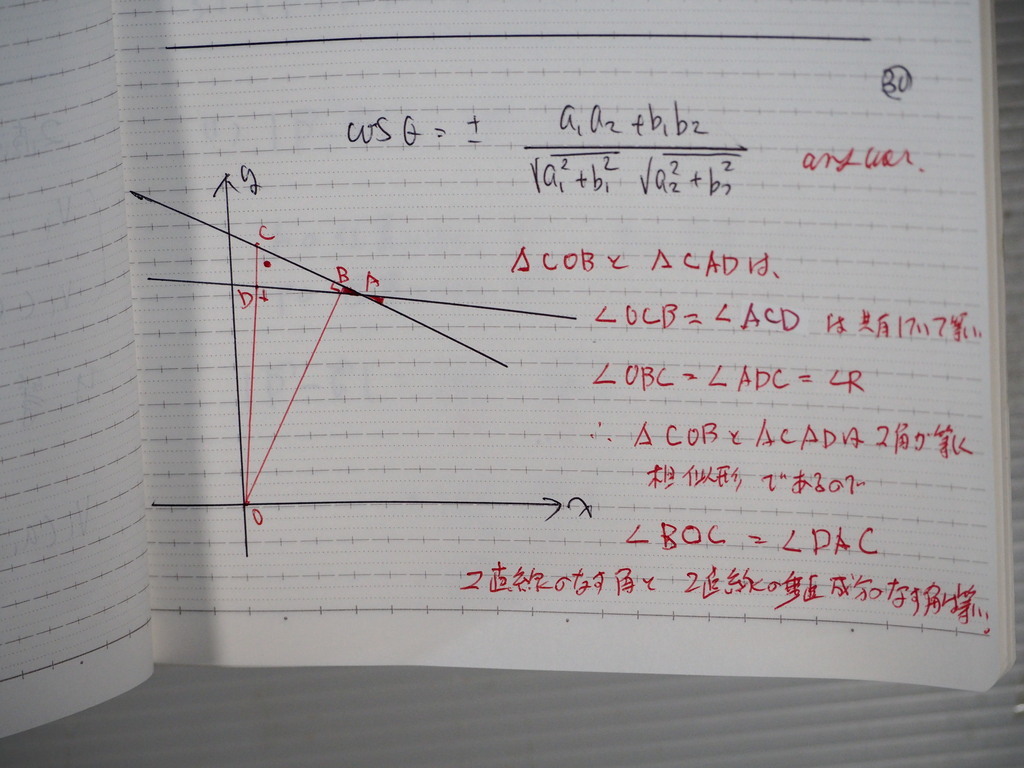 30
cos θ = ± (a₁a₂ + b₁b₂) / (√(a₁² + b₁²) √(a₂² + b₂²))
y
C
B A
D
O
x
△COBと△CADは、
∠OCB = ∠ACD は共有していて等しい
∠OBC = ∠ADC = ∠R
∴ △COBと△CADは2角が等しく
相似形であるので
∠BOC = ∠DAC
2直線のなす角と2直線の垂直成分のなす角は等しい。